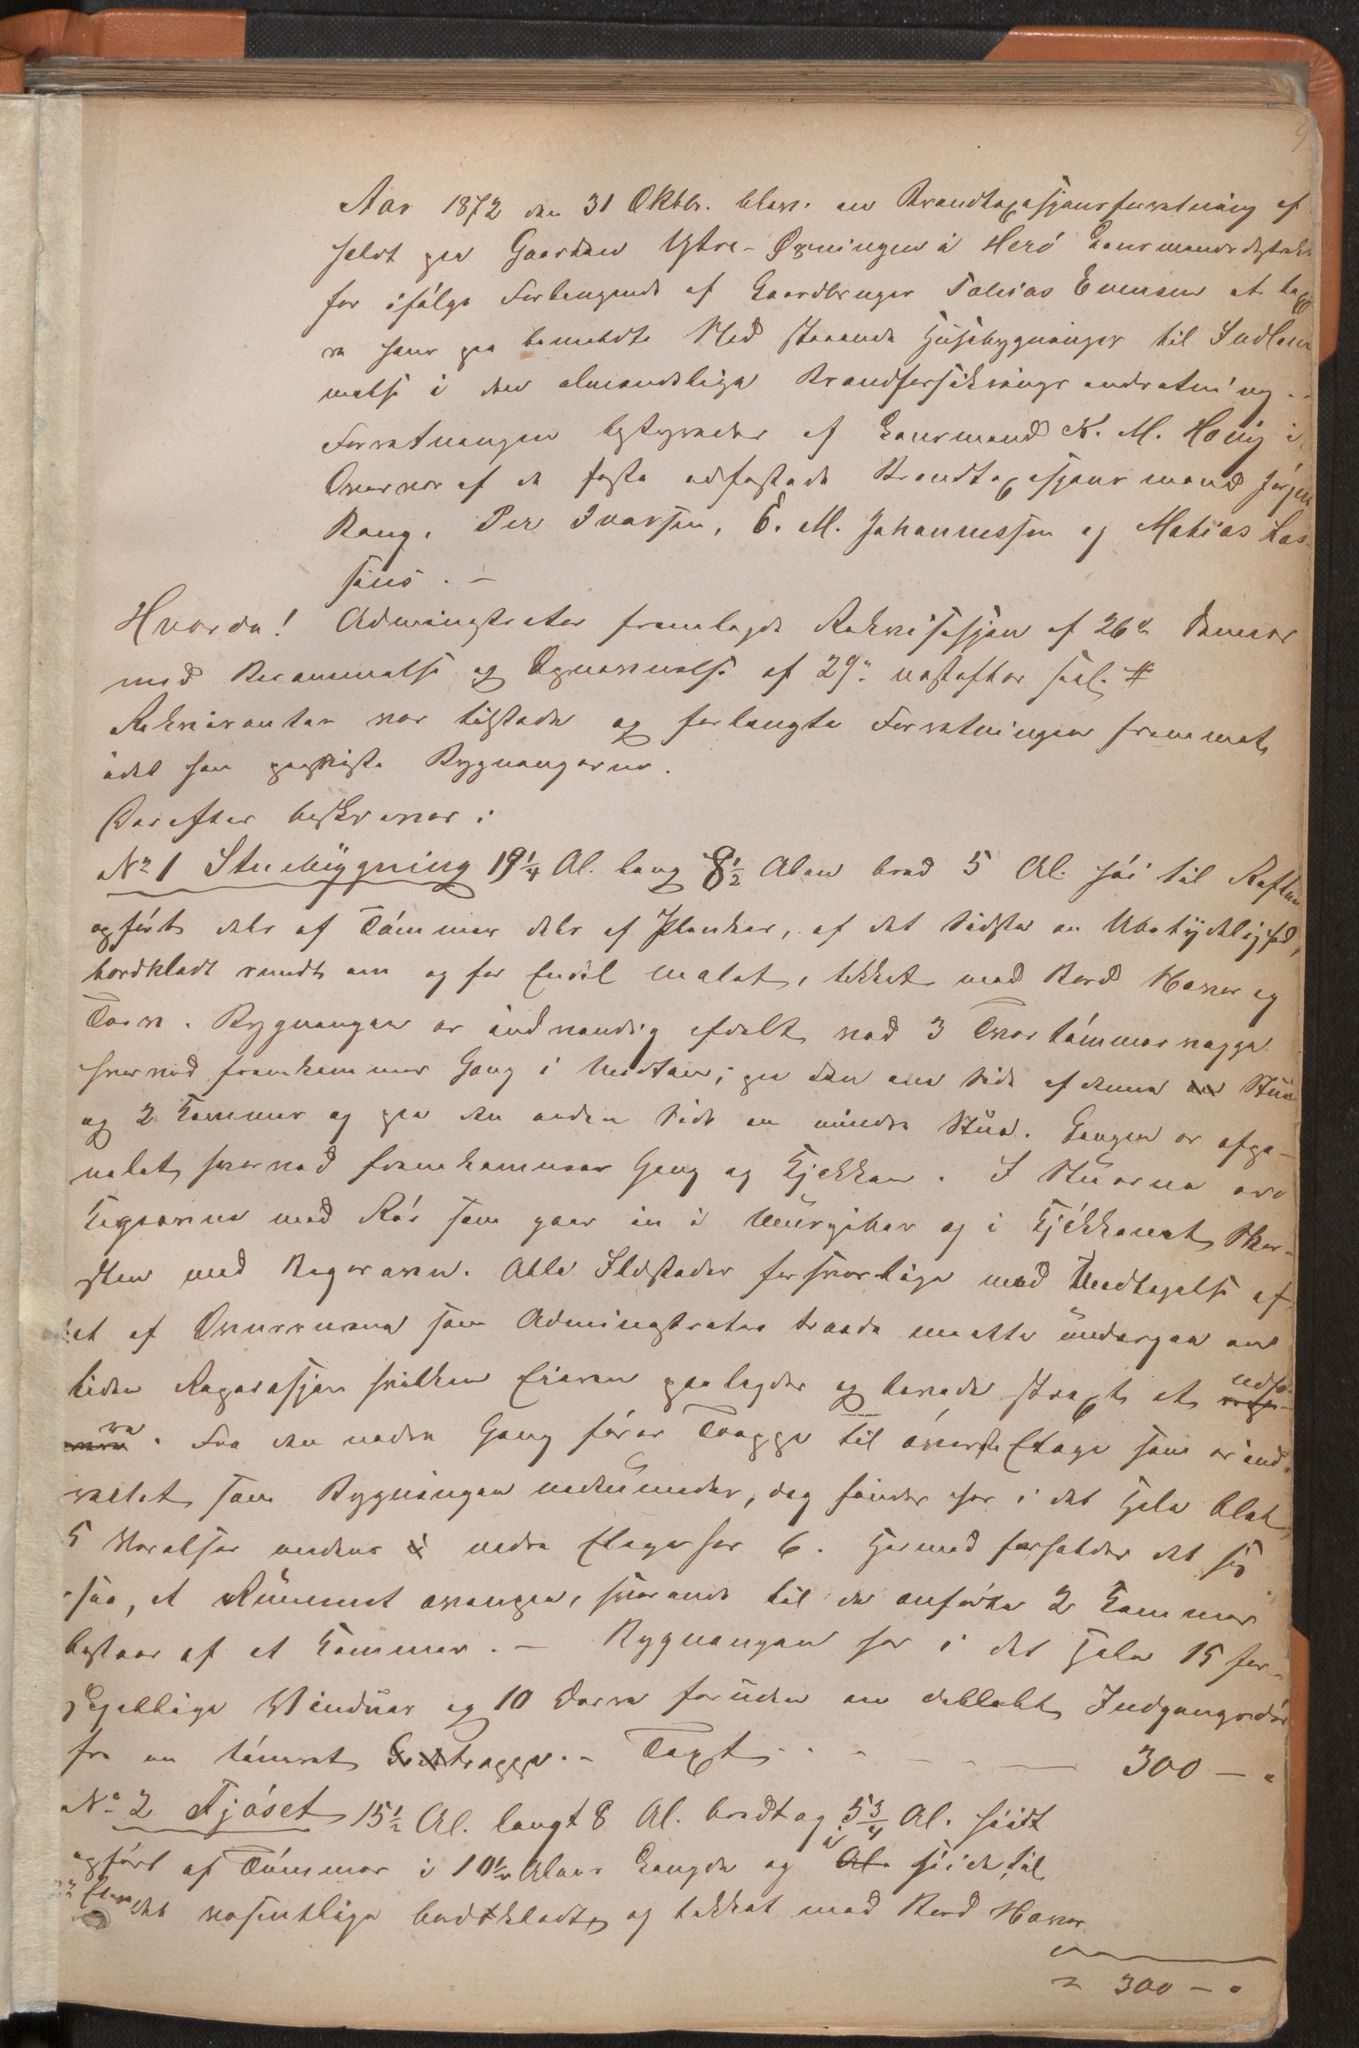 9
Aar 1872 den 31 Oktbr. blev en Brandtaxasjonsforretning af
holdt paa Gaarden Ytre-Øxningen i Herö Lensmandsdistrikt
for ifölge Forlangende af Gaardbruger Tobias Evensen at tage
re hans paa bemeldte Sted staaende Husebygninger til Indlem
melse i den almindelige Brandforsikringsindretning. -
Forretningen bestyredes af Lensmand K. M. Honig i
Overvær af de faste edfæstede Brandtaxasjonsmænd Jörgen
Bang, Per Ivarsen, E. M. Johannessen og Matias Las-
sens. -
Hvorda! Administrator fremlagde Rekvisisjon af 26de
med Berammelse og Opnævnelse af 29de næstefter saal. #
Rekvirenten var tilstede og forlangte Forretningen fremmet,
idet han paaviste Bygningerne.
Derefter beskreves:
No 1 Stuebÿgning 19 1/4 Al. lang 8 1/2 Alen bred 5 Al. höi til Raften
opfört dels af Tömmer dels af Planker, af det sidste en Ubetydelighed,
bordklædt rundt om og for Endel malet, tekket med Bord Næver og
Torv. Bygningen er indvendig afdelt ved 3 Tvertömmervægge
hvorved fremkommer Gang i Midten; paa den ene Side af denne Stue
og 2 Kammer og paa den anden Side en mindre Stue. Gangen er afpa-
nelet hvorved fremkommer Gang og Kjökken. I Stuerne ere
Kogeovne med Rör som gaar ind i Murpiber og i Kjökkenet Skor-
sten med Bagerovn. Alle Ildsteder forsvarlige med Undtagelse af
et af Ovnrörene som Administrator troede maatte undergaa en
liden Reparasjon hvilken Eieren paalagdes og lovede straxt at udfö-
re. Fra den nedre Gang förer Trappe til överste Etage som er ind-
rettet som Bygningen nedenunder, dog findes her i det Hele blot
5 Værelser medens nedre Etage har 6. Hermed forholder det sig
saa, at Rummet ovenpaa, svarende til de anförte 2 Kammer
bestaar af et Kammer. - Bygningen har i det Hele 15 for-
skjellige Vinduer og 10 Dörre foruden en dobbelt Indgangsdör
fra en tömret trappe. - Taxt - - - 300 - "
No 2 Fjöset 15 1/2 Al. langt 8 Al. bredt og 5 3/4 Al. höit
opfört af Tömmer i 10 1/2 Alens Længde og i Höide til
det væsentlige bordklædt, og tækket med Bord Næver
300 - "